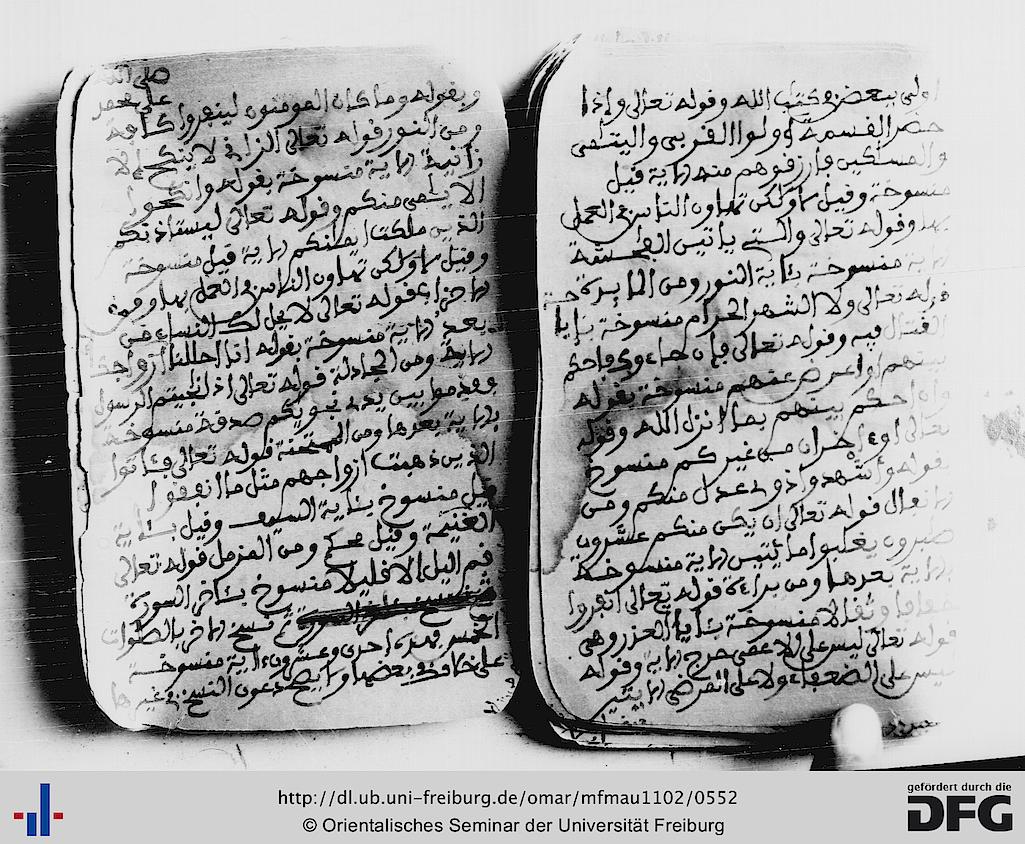 اولى ببعض في كتب الله وقوله تعالى وإذا
حضر القسمة أولوا القربى واليتمى
والمسكين فارزقوهم منه الاية قيل
منسوخة وقيل لا ولكن تهاون الناس في العمل
بها وقوله تعالى والتي ياتين الفحشة
الاية منسوخة بئاية النور ومن المايدة
قوله تعالى ولا الشهر الحرام منسوخة بإباحة
القتال فيه وقوله تعالى فإن جاءوك فاحكم
بينهم او اعرض عنهم منسوخة بقوله
وأن احكم بينهم بما انزل الله وقوله
تعالى او ءاخران من غيركم منسوخ
بقوله وأشهدوا ذوى عدل منكم ومن
الانفال قوله تعالى ان يكن منكم عشرون
صبرون يغلبوا مائتين الاية منسوخة
بالاية بعدها ومن براءة قوله تعالى انفروا
خفافا وثقالا منسوخة بئايا العذر وهي
قوله تعالى ليس على الاعمى حرج الاية وقوله
ليس على الضعفاء ولا على المرضى الايتين
صلى الله
على محمد
وبقوله وما كان المومنون لينفروا كافة
ومن النور قوله تعالى الزانى لا ينكح الا
زانية الاية منسوخة بقوله وانكحوا
الايمى منكم وقوله تعالى ليستاذنكم
الذين ملكت ايمنكم الاية قيل منسوخة
وقيل لا ولكن تهاون الناس في العمل بها ومن
الاحزاب قوله تعالى لا يحل لك النساء من
بعد الاية منسوخة بقوله انا احللنا ازواجك
الاية ومن المجادلة قوله تعالى اذا نجيتم الرسول
فقدموا بين يدى نجويكم صدقة منسوخة
بالاية بعدها ومن الممتحنة قوله تعالى فئاتوا
الذين ذهبت ازواجهم مثل ما انفقوا
قيل منسوخ بئاية السيف وقيل بئاية
الغنيمة وقيل محكم ومن المزمل قوله تعالى
قم اليل الا قليلا منسوخ بئاخر السورة
ثم نسخ الاخر بالصلوات
الخمس فهذه احدى وعشرون ءاية منسوخة
على خلاف في بعضها ولا يصح دعوى النسخ في غيرها
http://dl.ub.uni-freiburg.de/omar/mfmau1102/0552
© Orientalisches Seminar der Universität Freiburg
gefördert durch die
DFG